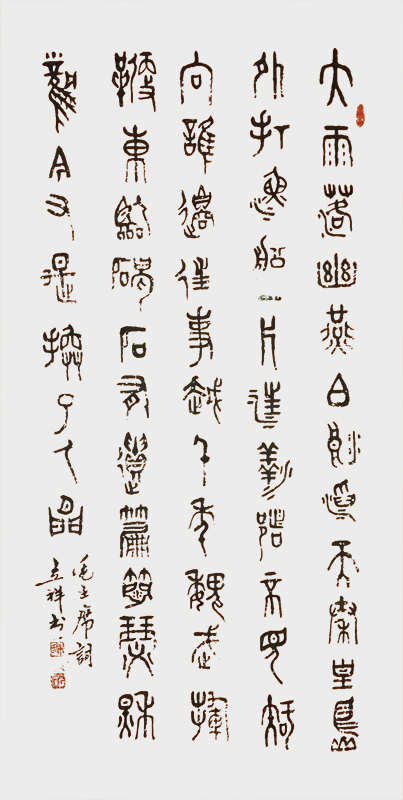 大雨落幽燕白浪滔天秦皇島
外打魚船一片汪洋都不見知
向誰邊往事越千年魏武揮
鞭東臨碣石有遺篇蕭瑟秋
風今又是換了人間
毛主席詞
立祥书